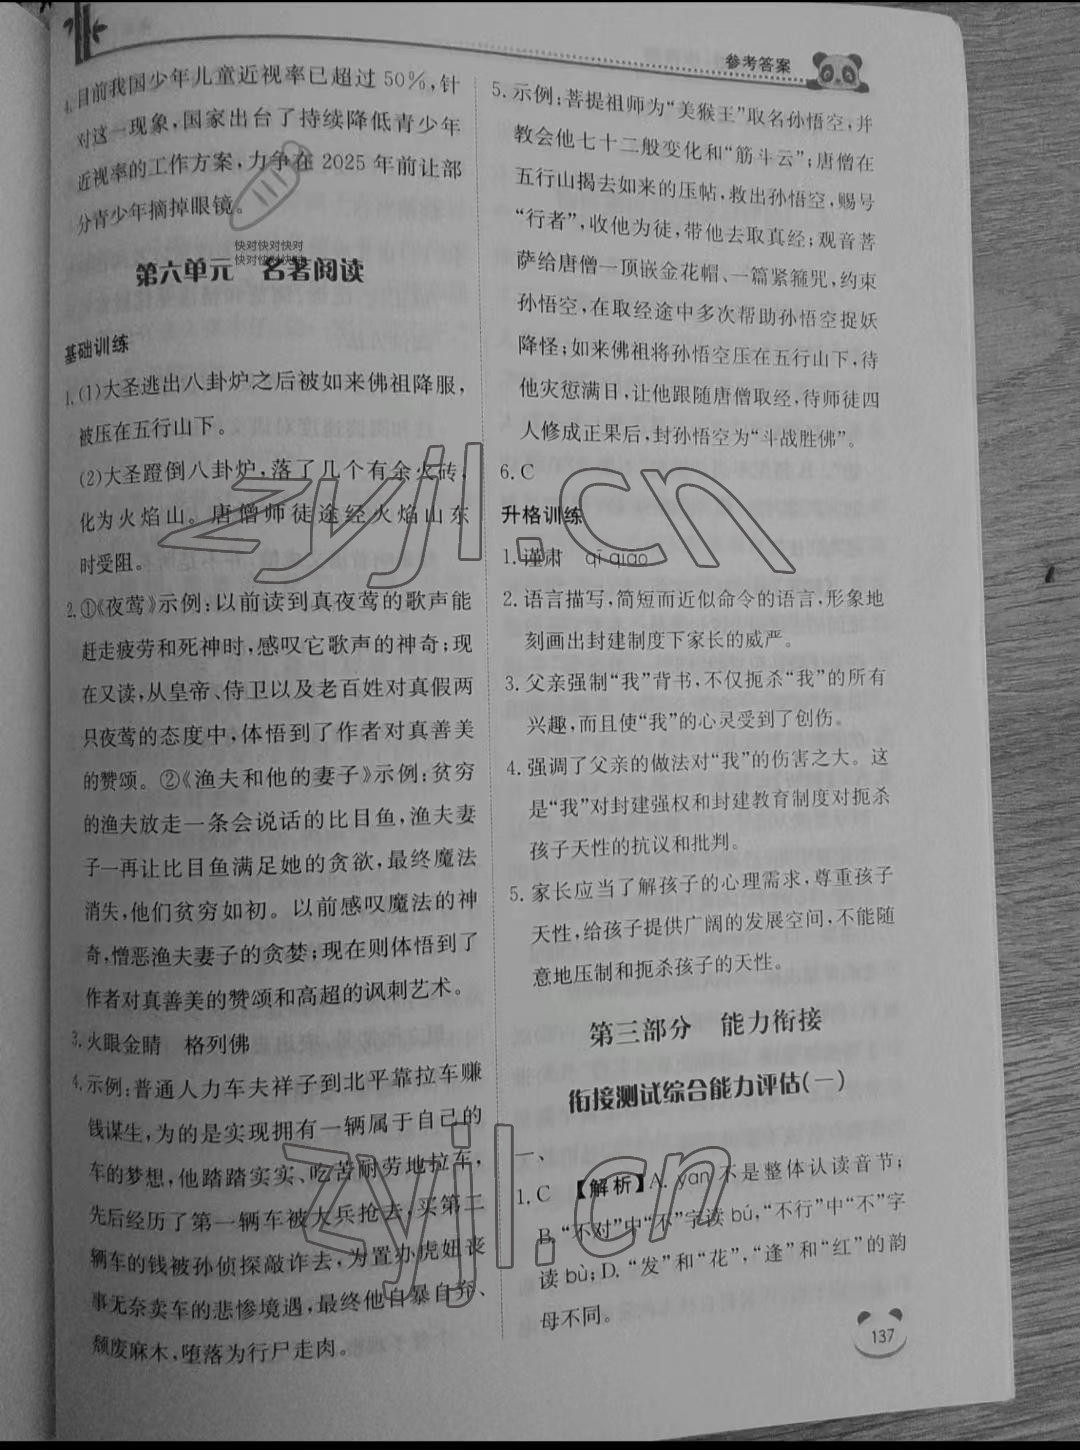 参考答案
4.目前我国少年儿童近视率已超过50%,针
对这一现象,国家出台了持续降低青少年
近视率的工作方案,力争在2025年前让部
分青少年摘掉眼镜。
快对快对快对
快对快对快对
第六单元 名著阅读
基础训练
1.(1)大圣逃出八卦炉之后被如来佛祖降服,
被压在五行山下。
(2)大圣蹬倒八卦炉,落了几个有余火砖,
化为火焰山。唐僧师徒途经火焰山东
时受阻。
2.①《夜莺》示例:以前读到真夜莺的歌声能
赶走疲劳和死神时,感叹它歌声的神奇;现
在又读,从皇帝、侍卫以及老百姓对真假两
只夜莺的态度中,体悟到了作者对真善美
的赞颂。②《渔夫和他的妻子》示例:贫穷
的渔夫放走一条会说话的比目鱼,渔夫妻
子一再让比目鱼满足她的贪欲,最终魔法
消失,他们贫穷如初。以前感叹魔法的神
奇,憎恶渔夫妻子的贪婪;现在则体悟到了
作者对真善美的赞颂和高超的讽刺艺术。
3.火眼金睛 格列佛
4.示例:普通人力车夫祥子到北平靠拉车赚
钱谋生,为的是实现拥有一辆属于自己的
车的梦想,他踏踏实实、吃苦耐劳地拉车,
先后经历了第一辆车被大兵抢去,买第二
辆车的钱被孙侦探敲诈去,为置办虎妞丧
事无奈卖车的悲惨境遇,最终他自暴自弃、
颓废麻木,堕落为行尸走肉。
5.示例:菩提祖师为“美猴王”取名孙悟空,并
教会他七十二般变化和“筋斗云”;唐僧在
五行山揭去如来的压帖,救出孙悟空,赐号
“行者”,收他为徒,带他去取真经;观音菩
萨给唐僧一顶嵌金花帽、一篇紧箍咒,约束
孙悟空,在取经途中多次帮助孙悟空捉妖
降怪;如来佛祖将孙悟空压在五行山下,待
他灾愆满日,让他跟随唐僧取经,待师徒四
人修成正果后,封孙悟空为“斗战胜佛”。
6.C
升格训练
1.谨肃 qī qiāo
2.语言描写,简短而近似命令的语言,形象地
刻画出封建制度下家长的威严。
3.父亲强制“我”背书,不仅扼杀“我”的所有
兴趣,而且使“我”的心灵受到了创伤。
4.强调了父亲的做法对“我”的伤害之大。这
是“我”对封建强权和封建教育制度对扼杀
孩子天性的抗议和批判。
5.家长应当了解孩子的心理需求,尊重孩子
天性,给孩子提供广阔的发展空间,不能随
意地压制和扼杀孩子的天性。
第三部分 能力衔接
衔接测试综合能力评估(一)
一、
1.C 【解析】A. yan不是整体认读音节;
B.“不对”中“不”字读bú,“不行”中“不”字
读bù;D.“发”和“花”,“逢”和“红”的韵
母不同。
137
zyjl.cn
zyjl.cn